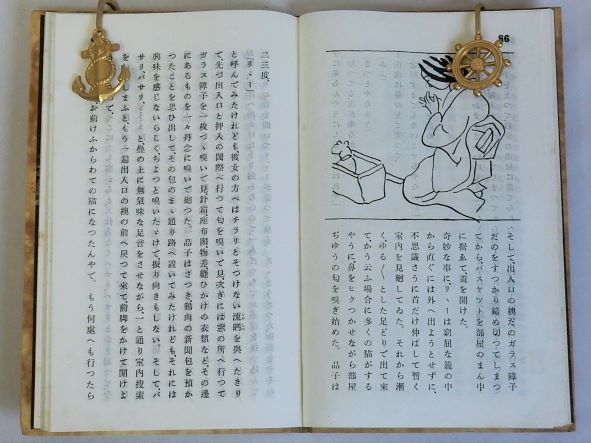 86
そして、出入口の襖だのガラス障子
だのをすつかり締め切つてしまつ
てから、バスケットを部屋のまん中
に据ゑて、蓋を開けた。
奇妙な事に、リヽーは窮屈な籠の中
から直ぐには外へ出ようとせずに、
不思議さうに首だけ伸ばして暫く
室内を見廻してゐた。それから漸
く、ゆる〳〵とした足どりで出て來
て、かう云ふ場合に多くの猫がする
やうに、鼻をヒクつかせながら部屋
ぢゆうの匂を嗅ぎ始めた。品子は
二三度、
「リヽー」
と呼んでみたけれども、彼女の方へはチラリとそつけない流眄を與へたきり
で、先づ出入口と押入の閾際へ行つて匂を嗅いで見、次ぎには窓の所へ行つて
ガラス障子を一枚づヽ嗅いで見、針箱、座布團、物差、縫ひかけの衣類など、その邊
にあるものを一々丹念に嗅いで廻つた。品子はさつき鷄肉の新聞包を預か
つたことを思ひ出して、その包のまヽ通り路へ置いてみたけれども、それには
興味を感じないらしく、ちよつと嗅いだだけで、振り向きもしない。そして、バ
サリ、バサリ、……と疊の上に無氣味な足音をさせながら、一と通り室内搜索
をしてしまふと、もう一遍出入口の襖の前へ戻つて來て、前脚をかけて開けよ
お前けふからわての猫になつたんやで。もう何處へも行つたら